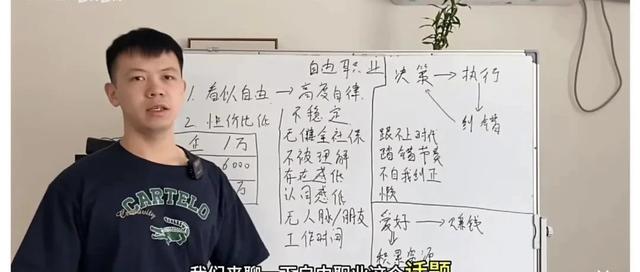 自由职业
1. 看似自由 → 高度自律
2. 性价比低
企 1万
6000
万
不稳定
无健全社保
不被理解
存在感低
认同感低
无人脉/朋友
工作时间
决策 → 执行
纠错
跟不上时代
踏错节奏
不自我纠正
懒
爱好 → 赚钱
积累资源
CARTELO
University
我们来聊一下自由职业这个话题